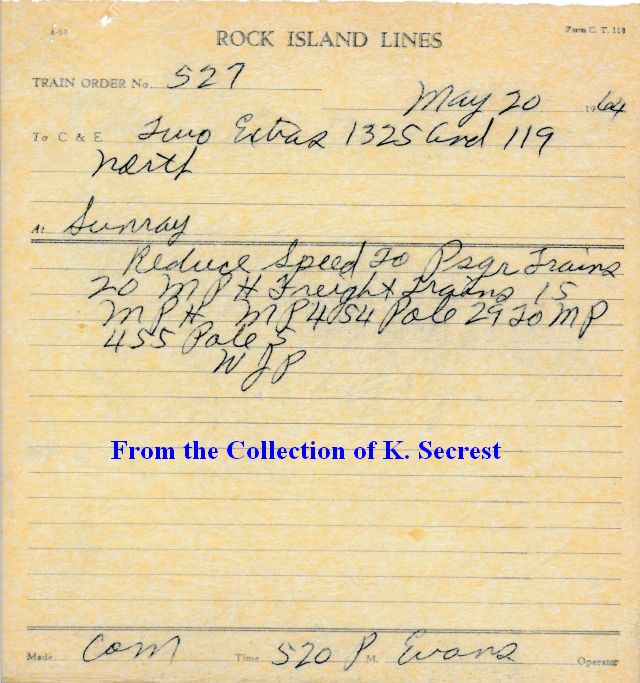 4-60 Form C. T. 110
ROCK ISLAND LINES
TRAIN ORDER No. 527
May 20 1964
To C & E Two Extras 1325 and 119
North
At Sunray
Reduce Speed To Psgr Trains
20 MPH Freight Trains 15
MPH MP 454 Pole 29 To MP
455 Pole 5
WJP
From the Collection of K. Secrest
Made Com Time 520 P. M. Evans Operator